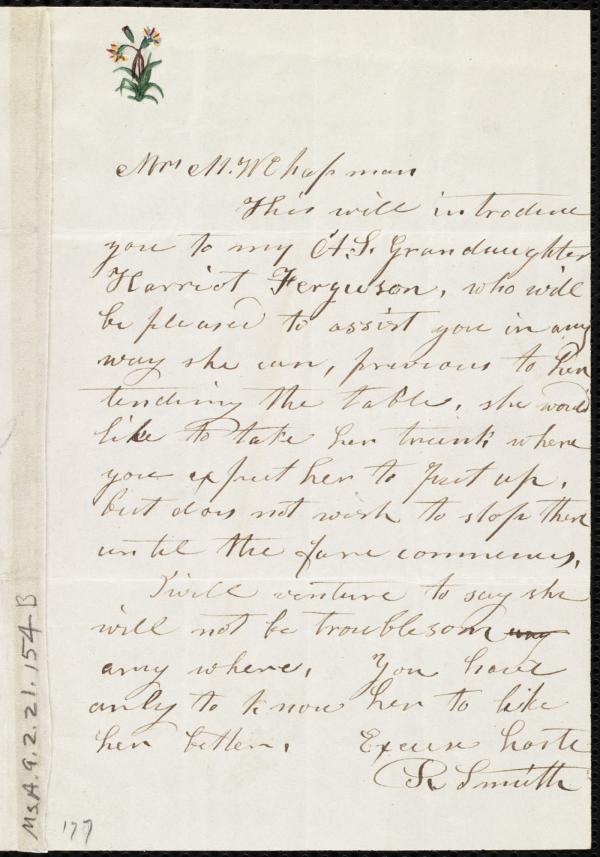 Mrs M. W Chapman
This will introduce
you to my A. S. Grandaughter
Harriot Ferguson, who will
be pleased to assist you in any
way she can, previous to her
tending the table, she would
like to take her trunk where
you expect her to put up,
but does not wish to stop there
until the fare commences,
I will venture to say she
will not be troublesom any
any where, You have
only to know her to like
her better. Excuse haste
R. Smith
177
Ms.A.9.2.21.154B